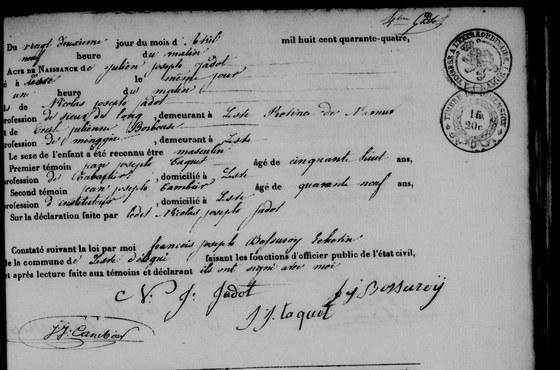 Du vingt deuxième jour du mois d'Avril mil huit cent quarante-quatre,
neuf heure du matin
ACTE DE NAISSANCE de julien joseph Jadot
é à Liste le même jour
un heure du matin
ls de Nicolas joseph Jadot
rofession de sieur de long, demeurant à Liste Province de Namur
et de julienne
rofession de ménagère, demeurant à Liste
Le sexe de l'enfant a été reconnu être masculin
Premier témoin jean joseph Taquet âgé de cinquante huit ans,
rofession de Cabaretier, domicilié à Liste
Second témoin jean joseph Cambier âgé de quarante neuf ans,
rofession d'instituteur, domicilié à Liste
Sur la déclaration faite par ledit Nicolas joseph Jadot
Constaté suivant la loi par moi françois joseph Echevin
de la commune de Liste délégué faisant les fonctions d'officier public de l'état civil,
et après lecture faite aux témoins et déclarant ils ont signé avec moi
N. J. Jadot
J. J. Taquet
J. J. Cambier